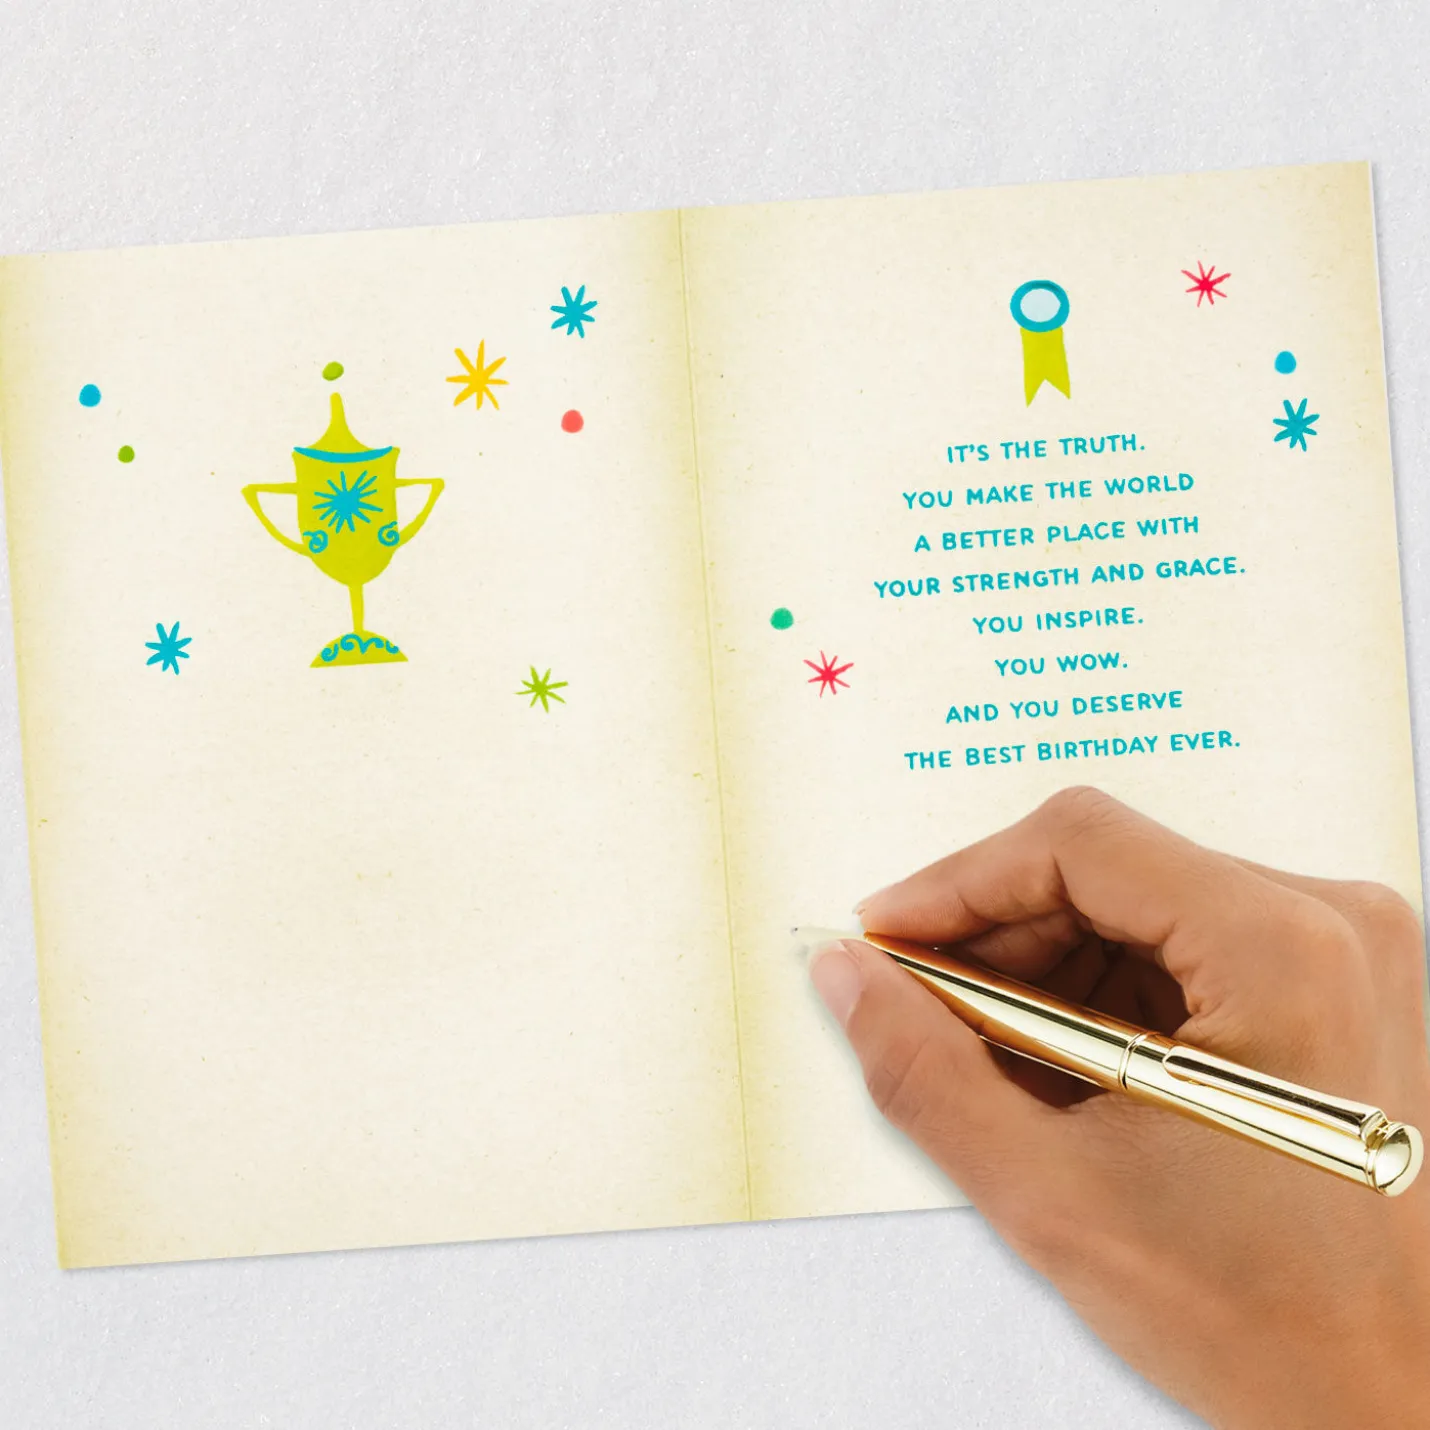 IT'S THE TRUTH.
YOU MAKE THE WORLD
A BETTER PLACE WITH
YOUR STRENGTH AND GRACE.
YOU INSPIRE.
YOU WOW.
AND YOU DESERVE
THE BEST BIRTHDAY EVER.